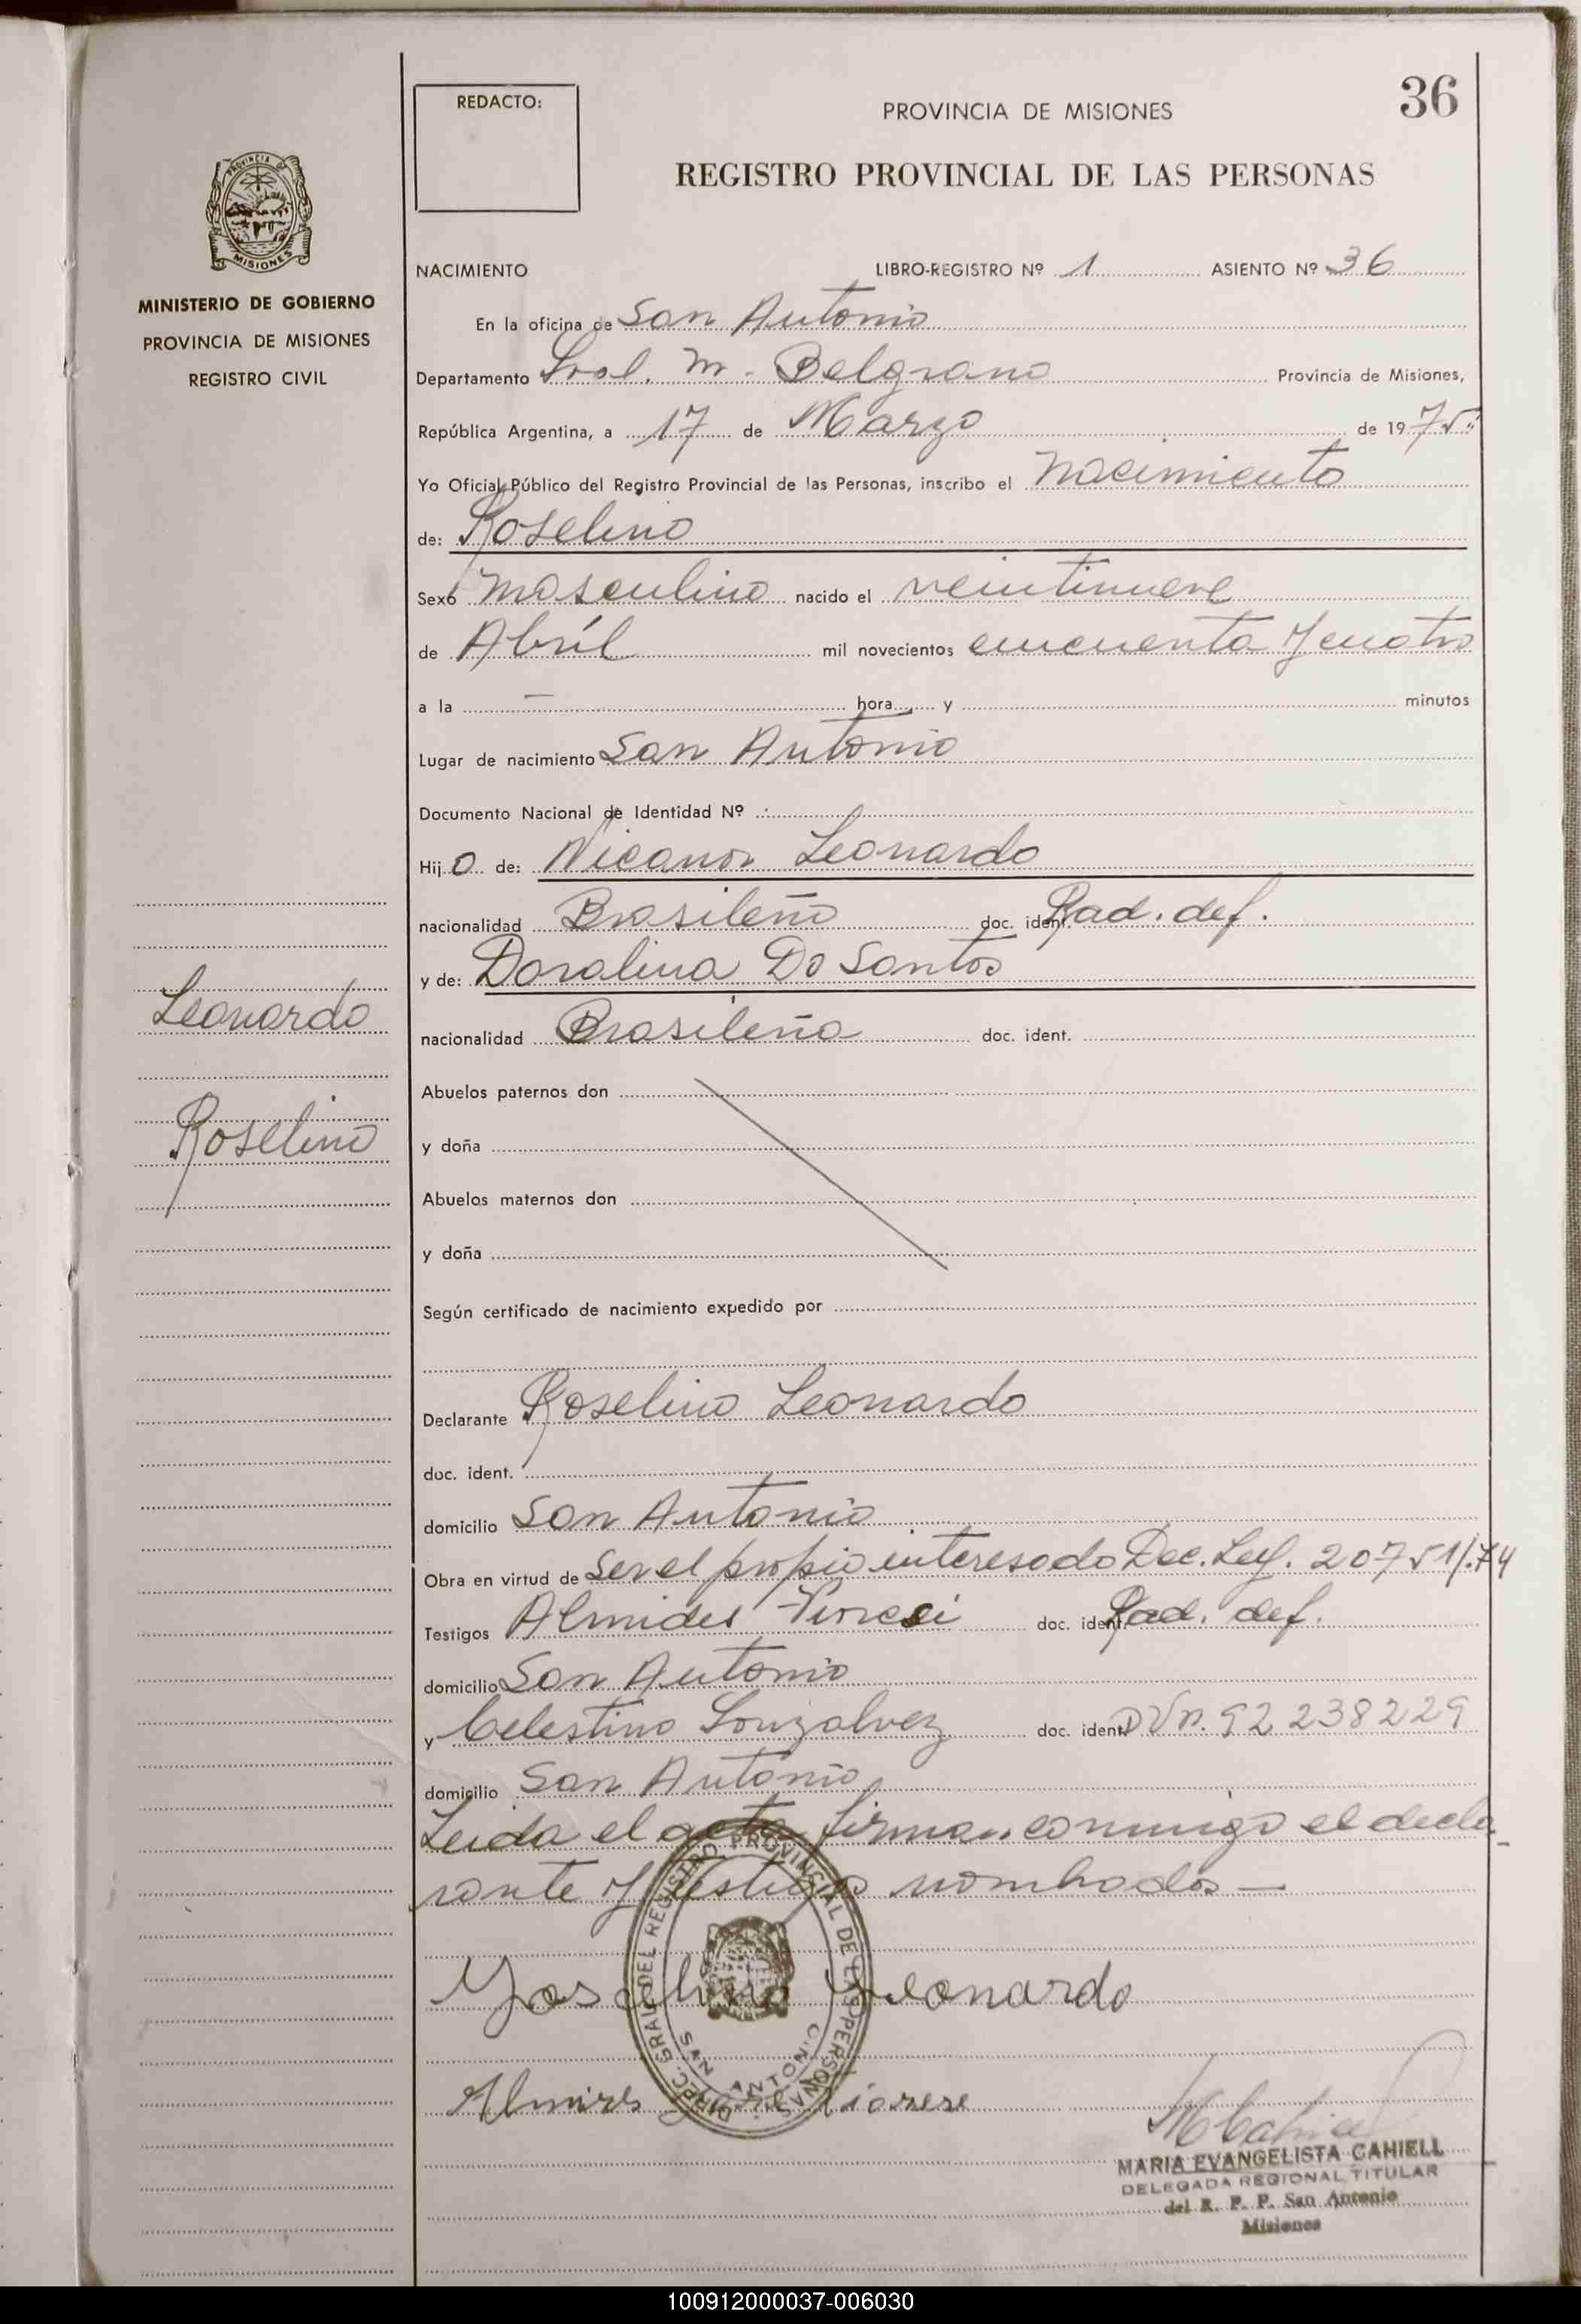 36
REDACTO:
PROVINCIA DE MISIONES
REGISTRO PROVINCIAL DE LAS PERSONAS
PROVINCIA DE
MISIONES
MINISTERIO DE GOBIERNO
PROVINCIA DE MISIONES
REGISTRO CIVIL
NACIMIENTO LIBRO-REGISTRO Nº 1 ASIENTO Nº 36
En la oficina de San Antonio
Departamento Gral. M. Belgrano Provincia de Misiones,
República Argentina, a 17 de Marzo de 1975
Yo Oficial Público del Registro Provincial de las Personas, inscribo el nacimiento
de: Roselino
Sexo masculino nacido el veintinueve
de Abril mil novecientos cincuenta y cuatro
a la — hora y minutos
Lugar de nacimiento San Antonio
Documento Nacional de Identidad Nº
Hijo de: Nicanor Leonardo
nacionalidad Brasileño doc. ident. Rad. def.
y de: Doralina Do Santos
nacionalidad Brasileña doc. ident.
Leonardo
Roselino
Abuelos paternos don
y doña
Abuelos maternos don
y doña
Según certificado de nacimiento expedido por
Declarante Roselino Leonardo
doc. ident.
domicilio San Antonio
Obra en virtud de Ser el propio interesado Dec. Ley. 20751/.74
Testigos doc. ident. Rad. def.
domicilio San Antonio
y Celestino Gonzalvez doc. ident. 92 238229
domicilio San Antonio
Leida el acta firman conmigo el decla-
rante y testigos nombrados —
DIREC. GRAL. DEL REGISTRO PROVINCIAL DE LAS PERSONAS
SAN ANTONIO
Leonardo
MARIA EVANGELISTA CAHIELL
DELEGADA REGIONAL TITULAR
del R. P. P. San Antonio
Misiones
100912000037-006030